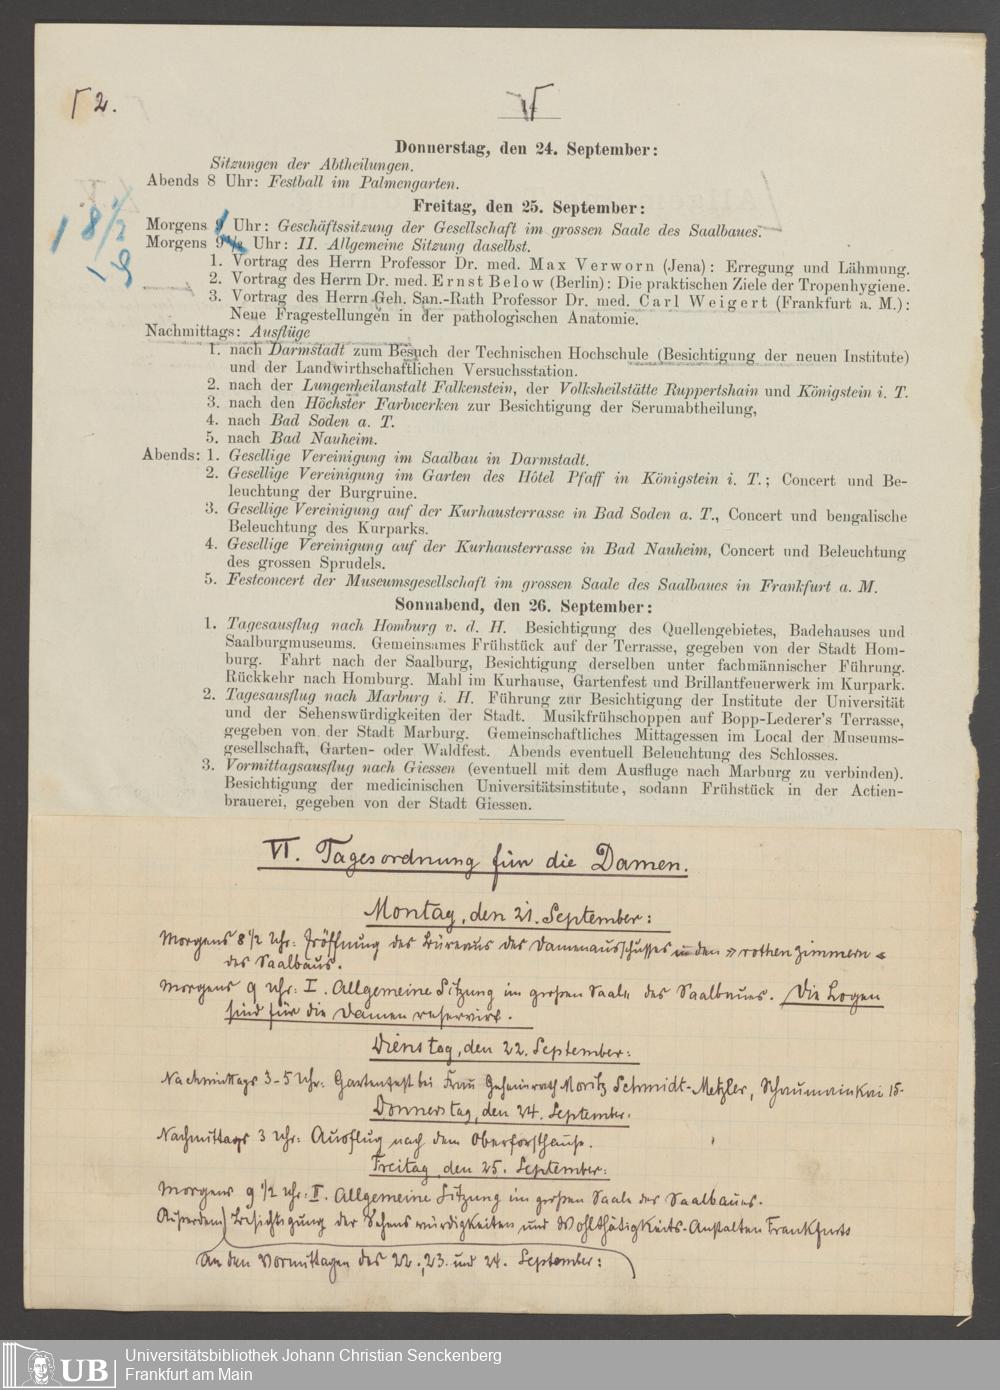 2.
Donnerstag, den 24. September:
Sitzungen der Abtheilungen.
Abends 8 Uhr: Festball im Palmengarten.
Freitag, den 25. September:
Morgens 9 Uhr: Geschäftssitzung der Gesellschaft im grossen Saale des Saalbaues.
Morgens 9½ Uhr: II. Allgemeine Sitzung daselbst.
8½
9
1. Vortrag des Herrn Professor Dr. med. Max Verworn (Jena): Erregung und Lähmung.
2. Vortrag des Herrn Dr. med. Ernst Below (Berlin): Die praktischen Ziele der Tropenhygiene.
3. Vortrag des Herrn Geh. San.-Rath Professor Dr. med. Carl Weigert (Frankfurt a. M.):
Neue Fragestellungen in der pathologischen Anatomie.
Nachmittags: Ausflüge
1. nach Darmstadt zum Besuch der Technischen Hochschule (Besichtigung der neuen Institute)
und der Landwirthschaftlichen Versuchsstation.
2. nach der Lungenheilanstalt Falkenstein, der Volksheilstätte Ruppertshain und Königstein i. T.
3. nach den Höchster Farbwerken zur Besichtigung der Serumabtheilung,
4. nach Bad Soden a. T.
5. nach Bad Nauheim.
Abends: 1. Gesellige Vereinigung im Saalbau in Darmstadt.
2. Gesellige Vereinigung im Garten des Hôtel Pfaff in Königstein i. T.; Concert und Be-
leuchtung der Burgruine.
3. Gesellige Vereinigung auf der Kurhausterrasse in Bad Soden a. T., Concert und bengalische
Beleuchtung des Kurparks.
4. Gesellige Vereinigung auf der Kurhausterrasse in Bad Nauheim, Concert und Beleuchtung
des grossen Sprudels.
5. Festconcert der Museumsgesellschaft im grossen Saale des Saalbaues in Frankfurt a. M.
Sonnabend, den 26. September:
1. Tagesausflug nach Homburg v. d. H. Besichtigung des Quellengebietes, Badehauses und
Saalburgmuseums. Gemeinsames Frühstück auf der Terrasse, gegeben von der Stadt Hom-
burg. Fahrt nach der Saalburg, Besichtigung derselben unter fachmännischer Führung.
Rückkehr nach Homburg. Mahl im Kurhause, Gartenfest und Brillantfeuerwerk im Kurpark.
2. Tagesausflug nach Marburg i. H. Führung zur Besichtigung der Institute der Universität
und der Sehenswürdigkeiten der Stadt. Musikfrühschoppen auf Bopp-Lederer's Terrasse,
gegeben von der Stadt Marburg. Gemeinschaftliches Mittagessen im Local der Museums-
gesellschaft, Garten- oder Waldfest. Abends eventuell Beleuchtung des Schlosses.
3. Vormittagsausflug nach Giessen (eventuell mit dem Ausfluge nach Marburg zu verbinden).
Besichtigung der medicinischen Universitätsinstitute, sodann Frühstück in der Actien-
brauerei, gegeben von der Stadt Giessen.
VI. Tagesordnung für die Damen.
Montag, den 21. September:
Morgens 8½ Uhr: Eröffnung des Büreaus des Damenausschusses in den »rothen Zimmern«
des Saalbaus.
Morgens 9 Uhr: I. Allgemeine Sitzung im großen Saale des Saalbaues. Die Logen
sind für die Damen reservirt.
Dienstag, den 22. September:
Nachmittags 3-5 Uhr: Gartenfest bei Frau Geheimrath Moritz Schmidt-Metzler, Schaumainkai 15.
Donnerstag, den 24. September.
Nachmittags 3 Uhr: Ausflug nach dem Oberforsthause.
Freitag, den 25. September:
Morgens 9½ Uhr: II. Allgemeine Sitzung im großen Saale des Saalbaues.
Außerdem) Besichtigung der Sehenswürdigkeiten und Wohlthätigkeits-Anstalten Frankfurts
An den Vormittagen des 22., 23. und 24. September:
UB
Universitätsbibliothek Johann Christian Senckenberg
Frankfurt am Main